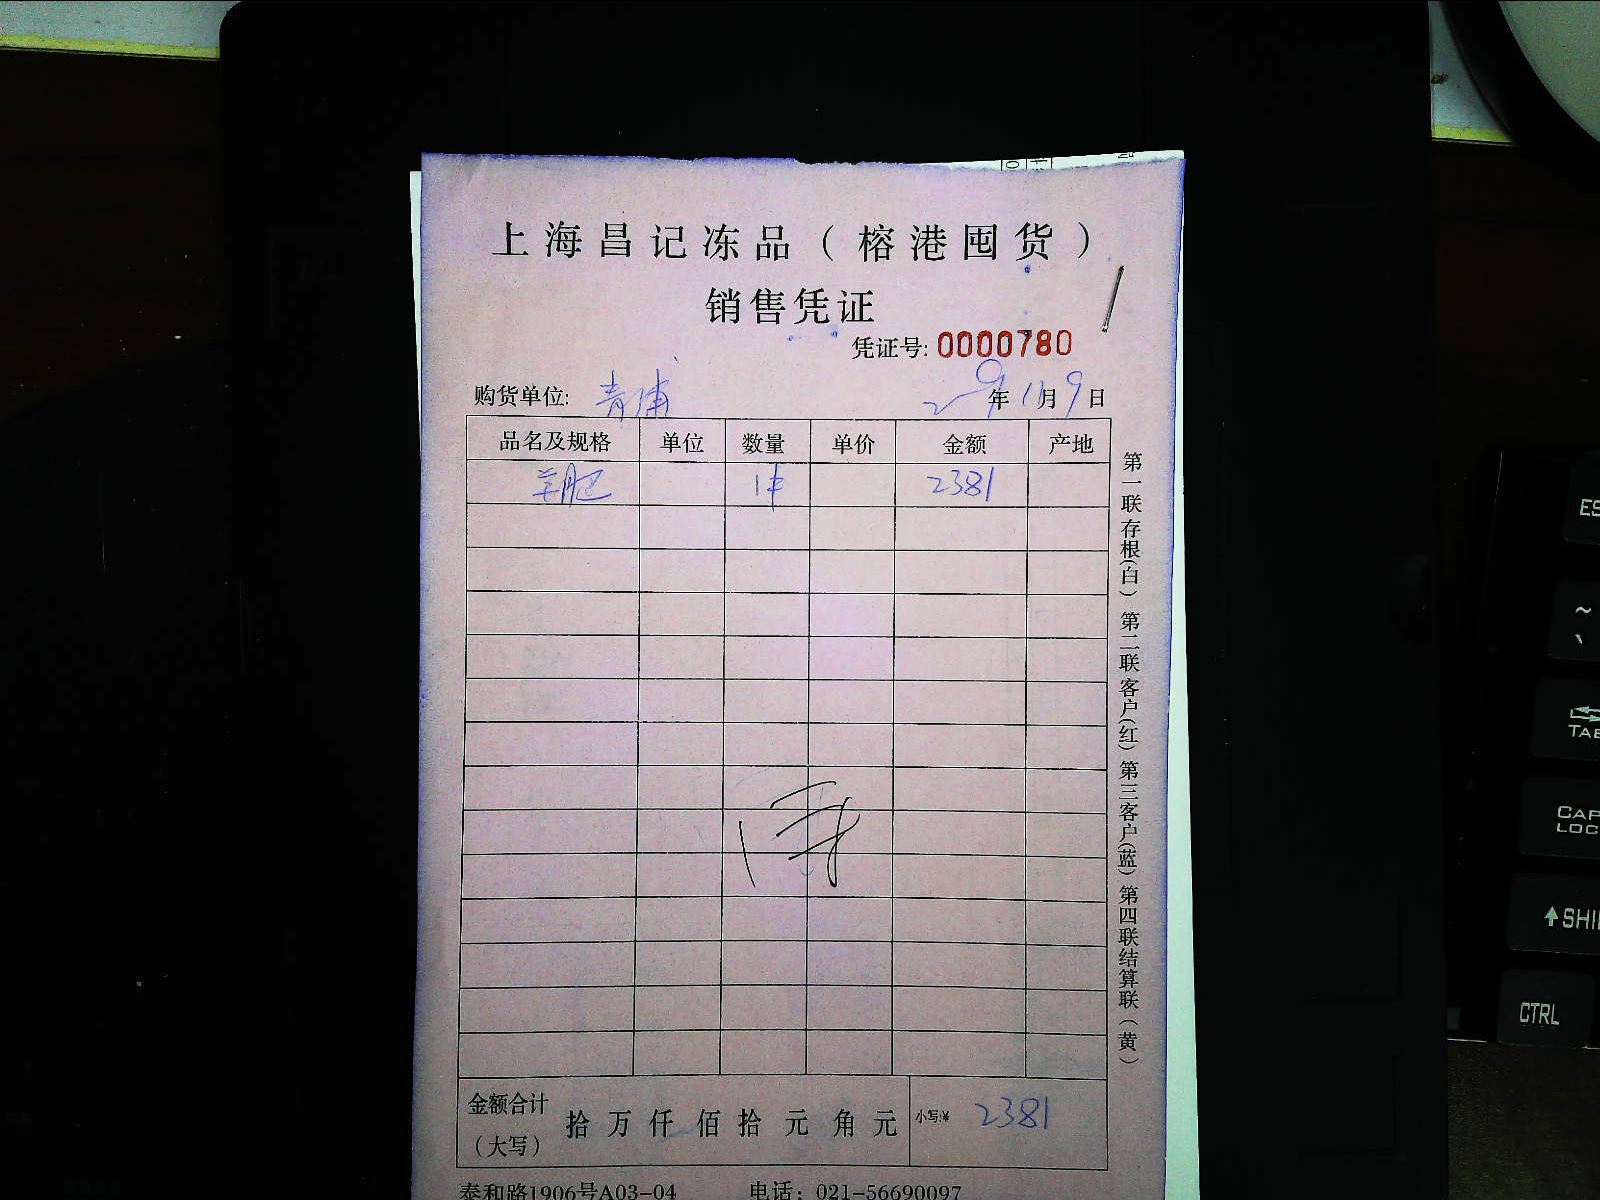 上海昌记冻品（榕港囤货）
销售凭证
凭证号: 0000780
购货单位: 青浦 年11月9日
品名及规格 单位 数量 单价 金额 产地
羊肥 1件 2381
金额合计（大写） 拾 万 仟 佰 拾 元 角 元 小写:¥ 2381
泰和路1906号A03-04 电话：021-56690097
第一联存根(白) 第二联客户(红) 第三客户(蓝) 第四联结算联(黄)
ES
~
TAB
CAP
LOC
SHI
CTRL